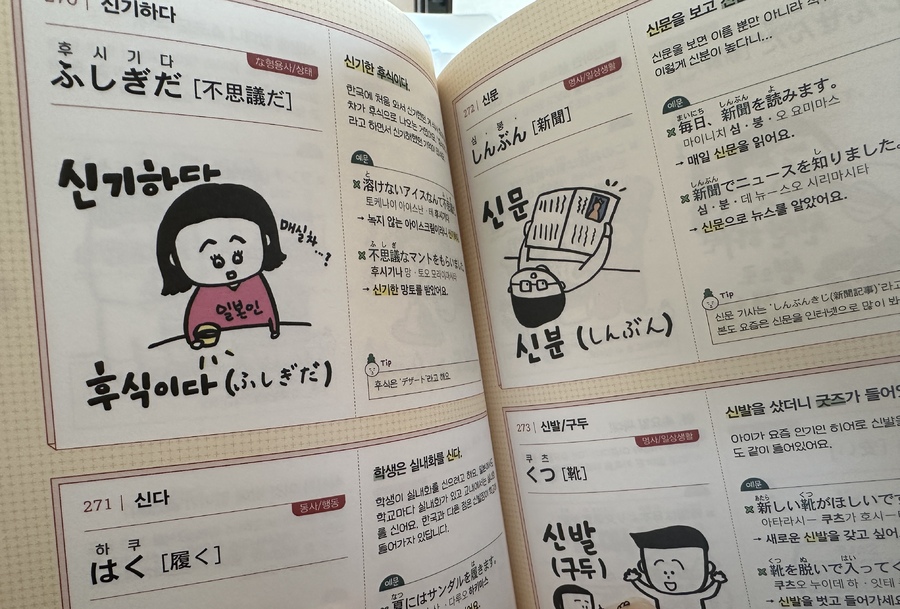 270 | 신기하다
후 시 기 다
ふしぎだ [不思議だ]
な형용사/상태
신기하다
매실차...?
일본인
후식이다 (ふしぎだ)
신기한 후식이다.
한국에 처음 와서 신기했던
차가 후식으로 나오는
라고 하면서 신기해했던
예문
溶けないアイスなんて
토케나이 아이스난
→ 녹지 않는 아이스크림이라니
ふしぎ
不思議なマントをもらいました
후시기나 망・토오 모라이마시타
→ 신기한 망토를 받았어요.
Tip
후식은 'デザート'라고 해요
271 | 신다
동사/행동
하 쿠
はく [履く]
학생은 실내화를 신다.
학생이 실내화를 신으려고 해요.
학교마다 실내화가 있고 교내에서는
를 신어요. 한국과 다른 점은
들어가자 있답니다.
예문
なつ
夏にはサンダルを履きます。
272 | 신문
명사/일상생활
심・붕
しんぶん [新聞]
신문
신분 (しんぶん)
신문을 보고
신문을 보면 이름 뿐만 아니라
이렇게 신분이 높다니...
예문
まいにち しんぶん よ
毎日、新聞を読みます。
마이니치 심・붕・오 요미마스
→ 매일 신문을 읽어요.
しんぶん し
新聞でニュースを知りました。
심・분・데 뉴ー스오 시리마시타
→ 신문으로 뉴스를 알았어요.
Tip
신문 기사는 'しんぶんきじ(新聞記事)'라고
본도 요즘은 신문을 인터넷으로 많이
273 | 신발/구두
명사/일상생활
쿠 츠
くつ [靴]
신발
(구두)
신발을 샀더니 굿즈가
아이가 요즘 인기인 히어로 신발을
도 같이 들어있어요.
예문
あたら くつ
新しい靴がほしいです
아타라시ー 쿠츠가 호시ー
→ 새로운 신발을 갖고 싶어
くつ ぬ はい
靴を脱いで入って
쿠츠오 누이데 하・잇테
→ 신발을 벗고 들어가세요